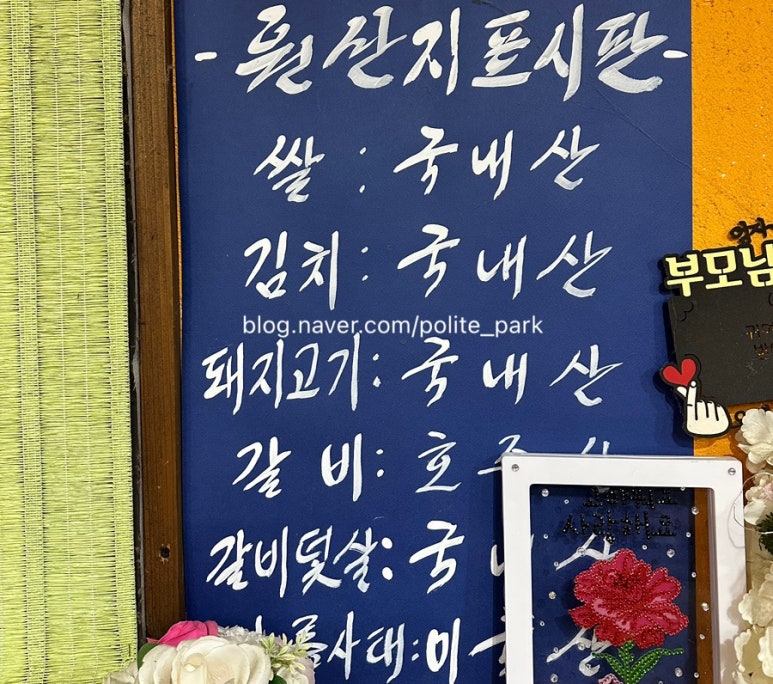 - 원산지표시판 -
쌀 : 국내산
김치 : 국내산
blog.naver.com/polite_park
돼지고기 : 국내산
갈비 : 호주산
갈비덧살 : 국내산
사태 : 미국산
부모님
사랑해요